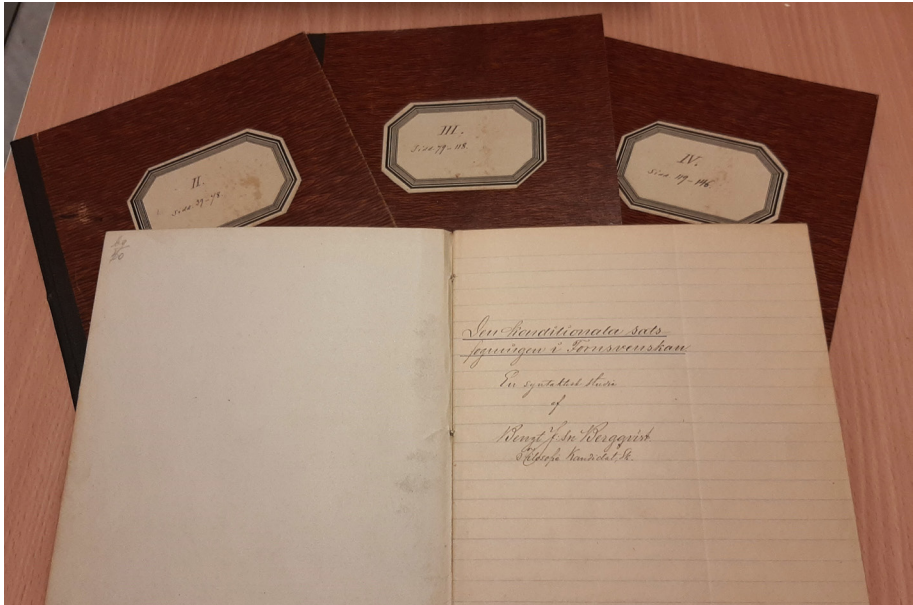 II.
Sidd. 39-78.
III.
Sidd. 79-118.
IV.
Sidd. 119-146.
Den konditionala sats
fogningen i Fornsvenskan
En syntaktisk studie
af
Bengt J:sn Bergqvist
Filosofie Kandidat,